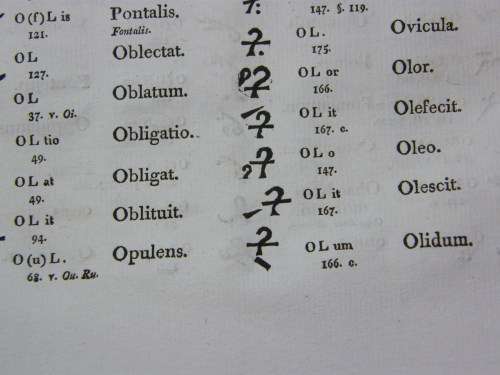 O (f) L is Pontalis.
121. Fontalis.
O L Oblectat.
127.
O L Oblatum.
37. v. Oi.
O L tio Obligatio.
49.
O L at Obligat.
49.
O L it Oblituit.
94.
O (u) L. Opulens.
68. v. Ou. Ru.
147. §. 119.
O L. Ovicula.
175.
O L or Olor.
166.
O L it Olefecit.
167. c.
O L o Oleo.
147.
O L it Olescit.
167.
O L um Olidum.
166. c.